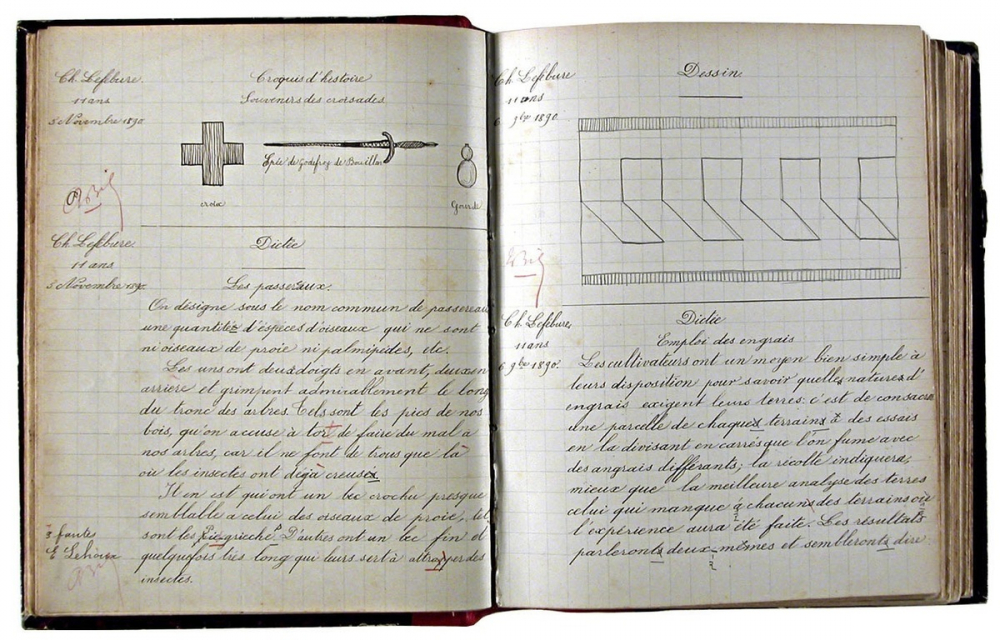 Ch. Lefebure
11 ans
5 Novembre 1890.
Croquis d'histoire
Souvenirs des croisades
croix
Epée de Godefroy de Bouillon
Gourde
Ch. Lefebure
11 ans
5 Novembre 1890.
Dictée
Les passereaux.
On désigne sous le nom commun de passereau
une quantitéz d'espèces d'oiseaux qui ne sont
ni oiseaux de proie ni palmipèdes, etc.
Les uns ont deux doigts en avant, deux en
arrière et grimpent admirablement le long
du tronc des arbres. Tels sont les pics de nos
bois, qu'on accuse à tort de faire du mal à
nos arbres, car il ne font de trous que là
où les insectes ont déjà creusé
Il en est qui ont un bec crochu presque
semblable à celui des oiseaux de proie, tel
sont les Pies-grièche. D'autres ont un bec fin et
quelquefois très long qui leurs sert à attraper des
insectes.
3 fautes
E Lehoux
Ch. Lefebure
11 ans
6 9bre 1890.
Dessin
Ch. Lefebure
11 ans
6 9bre 1890.
Dictée
Emploi des engrais
Les cultivateurs ont un moyen bien simple à
leurs disposition pour savoir quelles natures d'
engrais exigent leurs terres: c'est de consacrer
une parcelle de chaque terrains à des essais
en la devisant en carrés que l'on fume avec
des angrais différants; la récolte indiquera,
mieux que la meilleure analyse des terres
celui qui manque à chacun des terrains où
l'expérience aura été faite. Les résultats
parleronts deux-mêmes et sembleronts dire